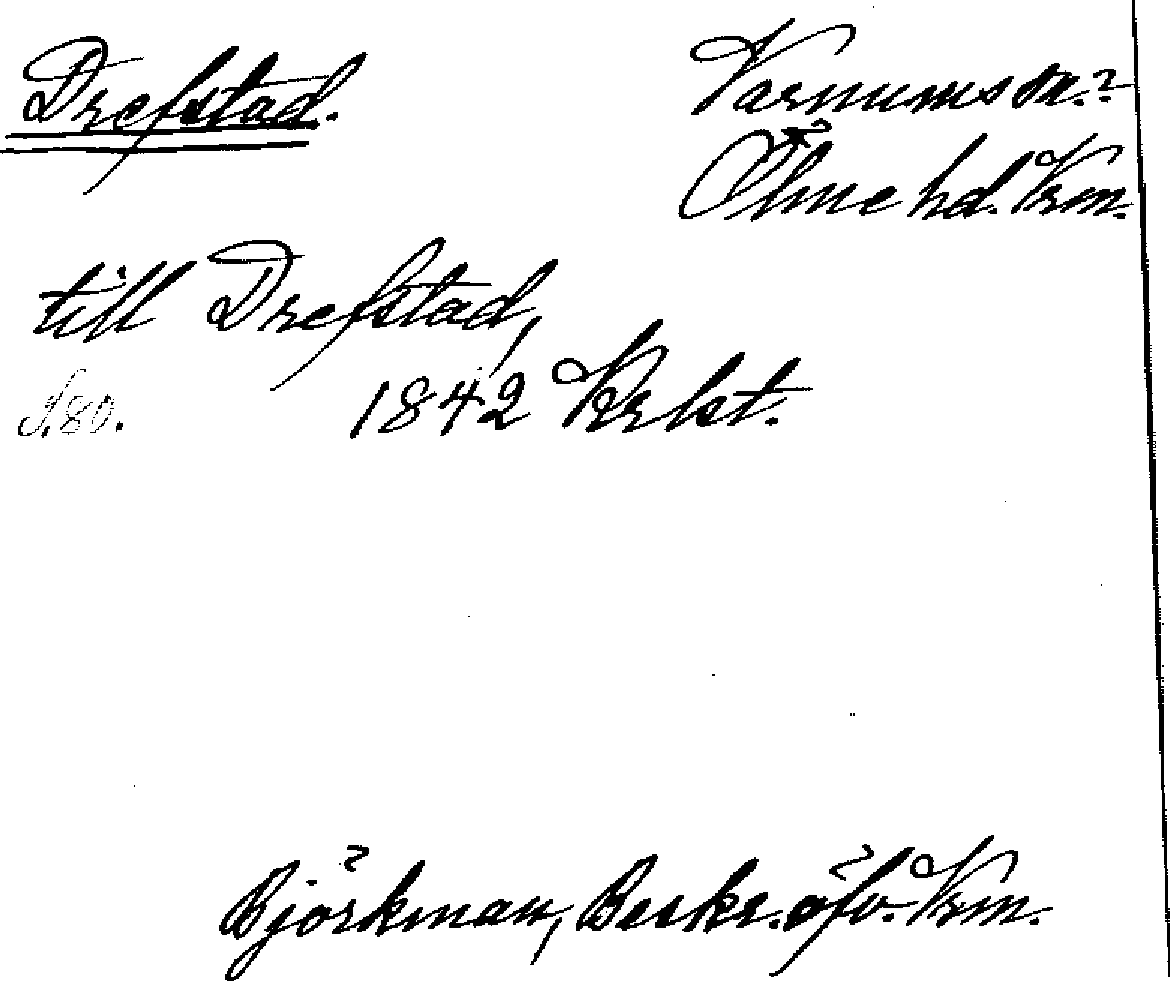 Drefstad.
Varnums sn.?
Ölme hd. Vrm.
till Drefstad,
S.80.
1842 Krlst.
Björkman, Beskr. öfv. Vrm.